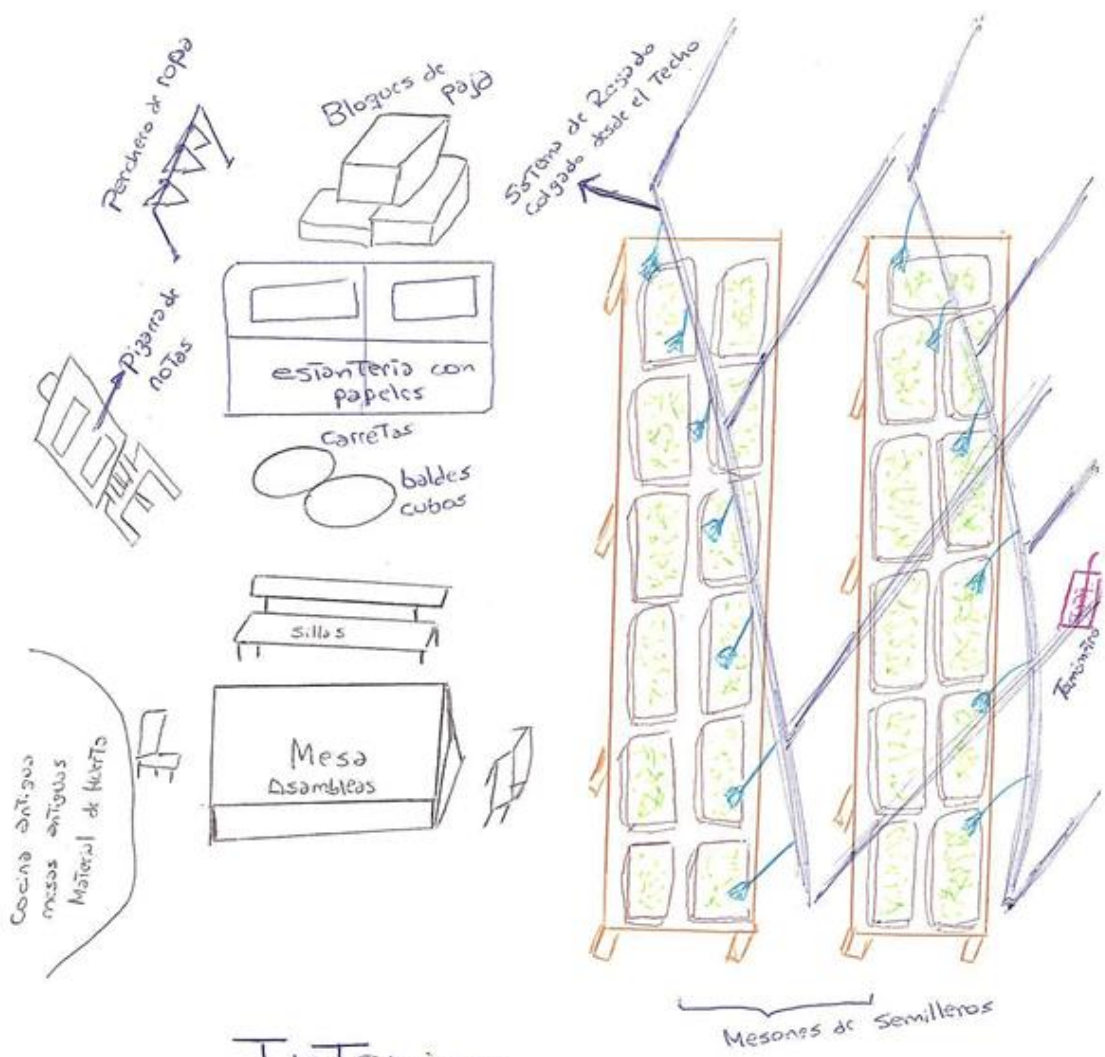 Perchero de ropa
Bloques de
paja
Sistema de Regado
colgado desde el Techo
Pizarra de
notas
estanteria con
papeles
carretas
baldes
cubos
sillas
Mesa
Asambleas
Cocina antigua
mesas antiguas
Material de Huerta
Mesones de Semilleros